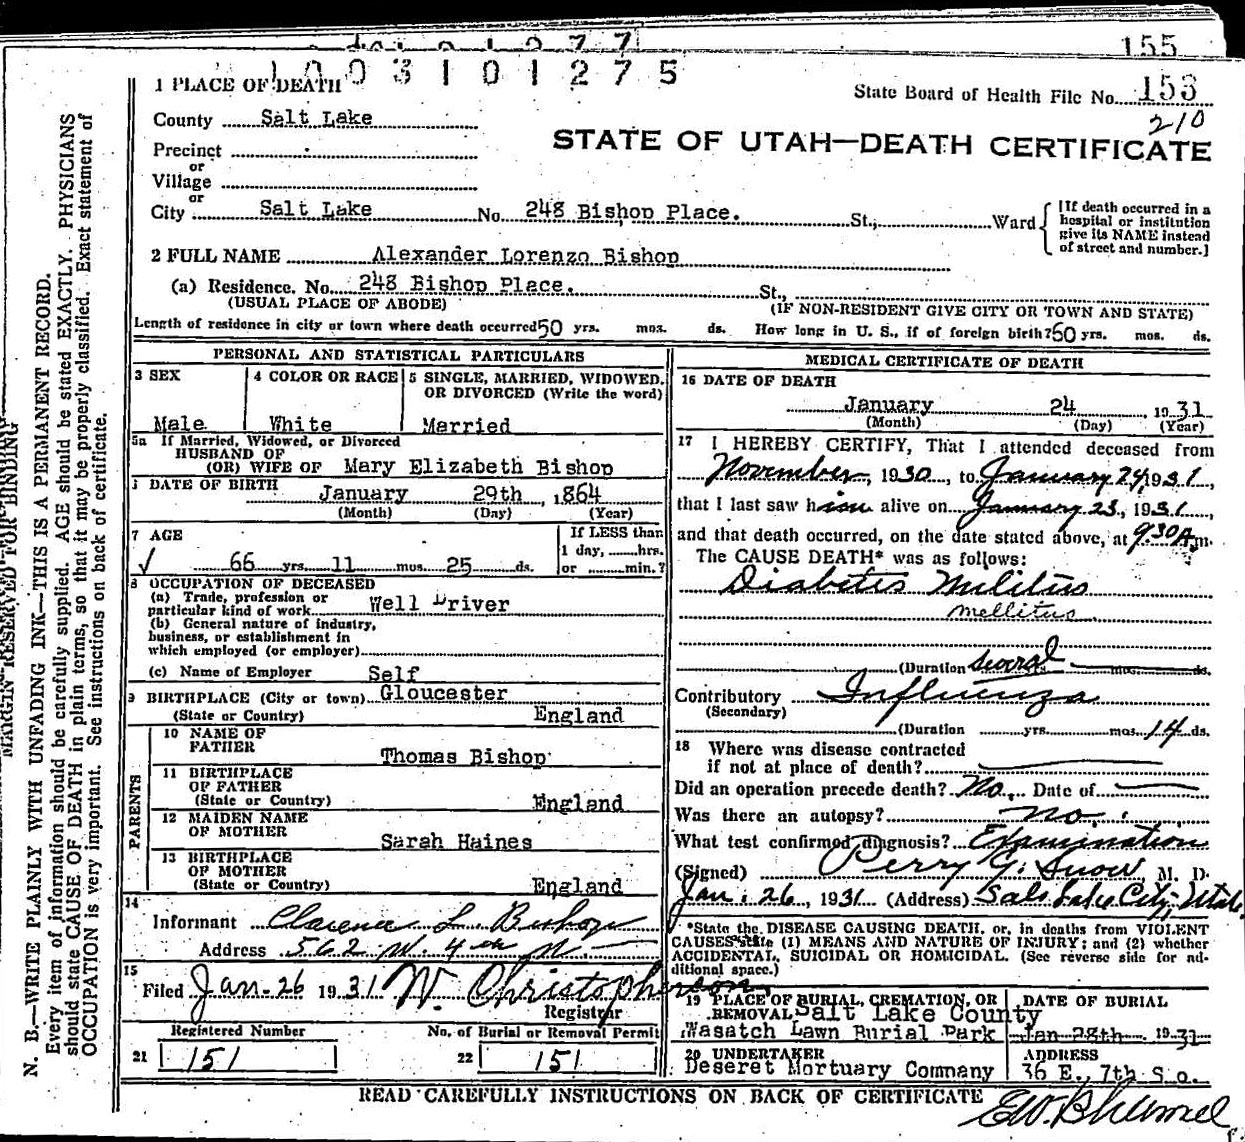 155
1003101275
1 PLACE OF DEATH
State Board of Health File No. 153
210
County Salt Lake
STATE OF UTAH—DEATH CERTIFICATE
Precinct
or
Village
or
City Salt Lake No. 248 Bishop Place. St., Ward
[If death occurred in a
hospital or institution
give its NAME instead
of street and number.]
2 FULL NAME Alexander Lorenzo Bishop
(a) Residence. No. 248 Bishop Place. St.,
(USUAL PLACE OF ABODE) (IF NON-RESIDENT GIVE CITY OR TOWN AND STATE)
Length of residence in city or town where death occurred 50 yrs. mos. ds. How long in U. S., if of foreign birth? 60 yrs. mos. ds.
PERSONAL AND STATISTICAL PARTICULARS
3 SEX 4 COLOR OR RACE 5 SINGLE, MARRIED, WIDOWED,
OR DIVORCED (Write the word)
Male White Married
5a If Married, Widowed, or Divorced
HUSBAND OF
(OR) WIFE OF Mary Elizabeth Bishop
DATE OF BIRTH
January 29th, 1864
(Month) (Day) (Year)
7 AGE If LESS than
1 day, hrs.
66 yrs. 11 mos. 25 ds. or min.?
8 OCCUPATION OF DECEASED
(a) Trade, profession or
particular kind of work Well Driver
(b) General nature of industry,
business, or establishment in
which employed (or employer)
(c) Name of Employer Self
9 BIRTHPLACE (City or town) Gloucester
(State or Country) England
PARENTS
10 NAME OF
FATHER Thomas Bishop
11 BIRTHPLACE
OF FATHER
(State or Country) England
12 MAIDEN NAME
OF MOTHER Sarah Haines
13 BIRTHPLACE
OF MOTHER
(State or Country) England
14
Informant Clarence L. Bishop
Address 562 W. 4th N.
15
Filed Jan-26 1931 W. Christopherson
Registrar
Registered Number No. of Burial or Removal Permit
21 151 22 151
MEDICAL CERTIFICATE OF DEATH
16 DATE OF DEATH
January 24, 1931
(Month) (Day) (Year)
17 I HEREBY CERTIFY, That I attended deceased from
November, 1930, to January 24, 1931,
that I last saw him alive on January 23, 1931,
and that death occurred, on the date stated above, at 9:30 A.m.
The CAUSE DEATH* was as follows:
Diabetis Militus
mellitus
(Duration several mos. ds.
Contributory Influenza
(Secondary)
(Duration yrs. mos. 14 ds.
18 Where was disease contracted
if not at place of death?
Did an operation precede death? No. Date of
Was there an autopsy? no.
What test confirmed diagnosis? Examination
(Signed) Perry G. Snow, M. D.
Jan. 26, 1931 (Address) Salt Lake City, Utah
*State the DISEASE CAUSING DEATH, or, in deaths from VIOLENT
CAUSES state (1) MEANS AND NATURE OF INJURY; and (2) whether
ACCIDENTAL, SUICIDAL OR HOMICIDAL. (See reverse side for ad-
ditional space.)
19 PLACE OF BURIAL, CREMATION, OR
REMOVAL Salt Lake County
Wasatch Lawn Burial Park
DATE OF BURIAL
Jan 28th 1931
20 UNDERTAKER
Deseret Mortuary Company
ADDRESS
36 E., 7th So.
READ CAREFULLY INSTRUCTIONS ON BACK OF CERTIFICATE
MARGIN RESERVED FOR BINDING
N. B.—WRITE PLAINLY WITH UNFADING INK—THIS IS A PERMANENT RECORD.
Every item of information should be carefully supplied. AGE should be stated EXACTLY. PHYSICIANS
should state CAUSE OF DEATH in plain terms, so that it may be properly classified. Exact statement of
OCCUPATION is very important. See instructions on back of certificate.